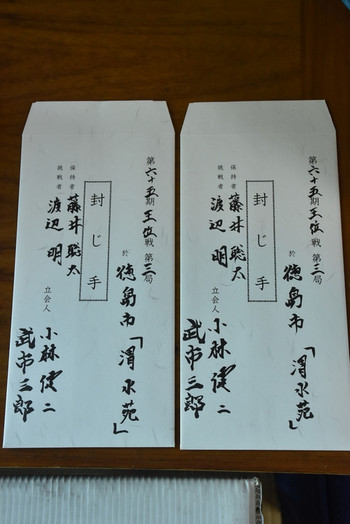 第六十五期王位戦 第三局
於 徳島市「渭水苑」
封じ手
立会人 小林健二
武市三郎
保持者 藤井聡太
挑戦者 渡辺 明
第六十五期王位戦 第三局
於 徳島市「渭水苑」
封じ手
立会人 小林健二
武市三郎
保持者 藤井聡太
挑戦者 渡辺 明